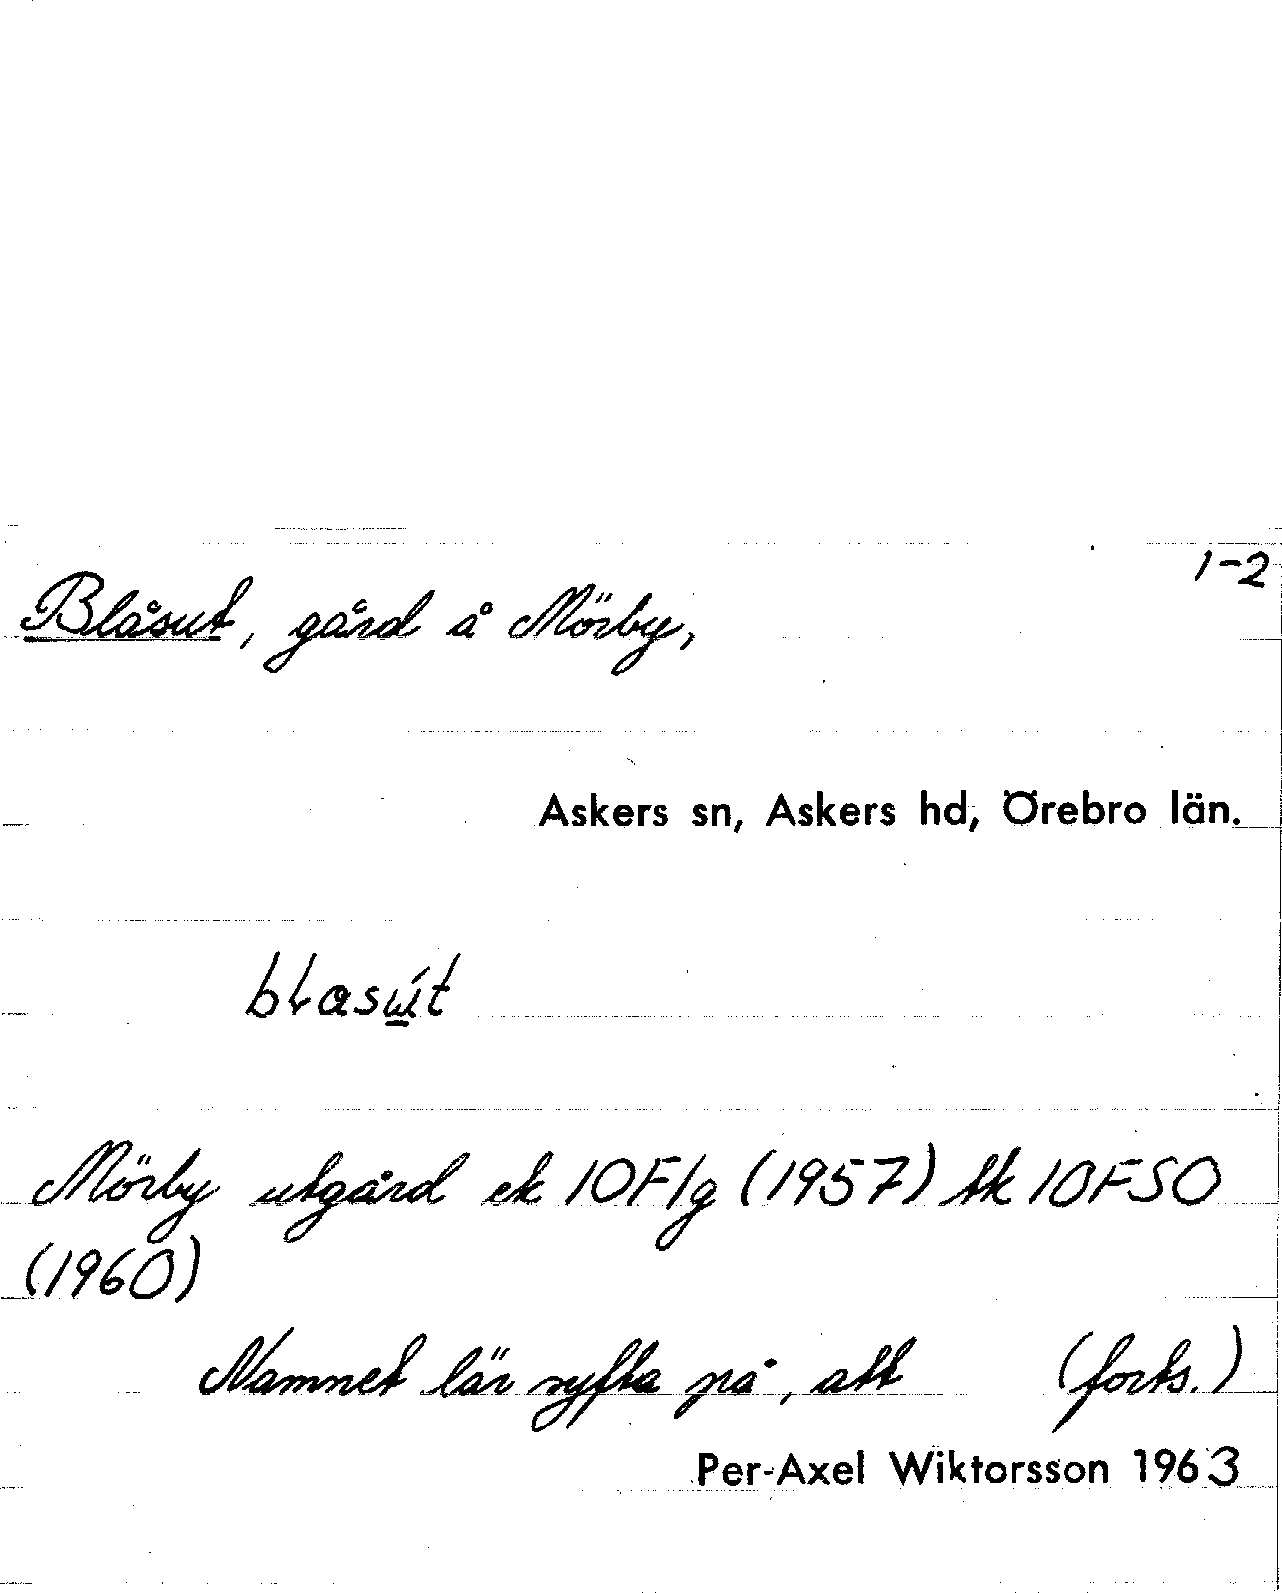 1-2
Blåsut, gård å Mörby,
Askers sn, Askers hd, Örebro län.
Mörby utgård ek 10F1g (1957) tk 10FSO
(1960)
Namnet lär syfta på, att (forts.)
Per-Axel Wiktorsson 1963